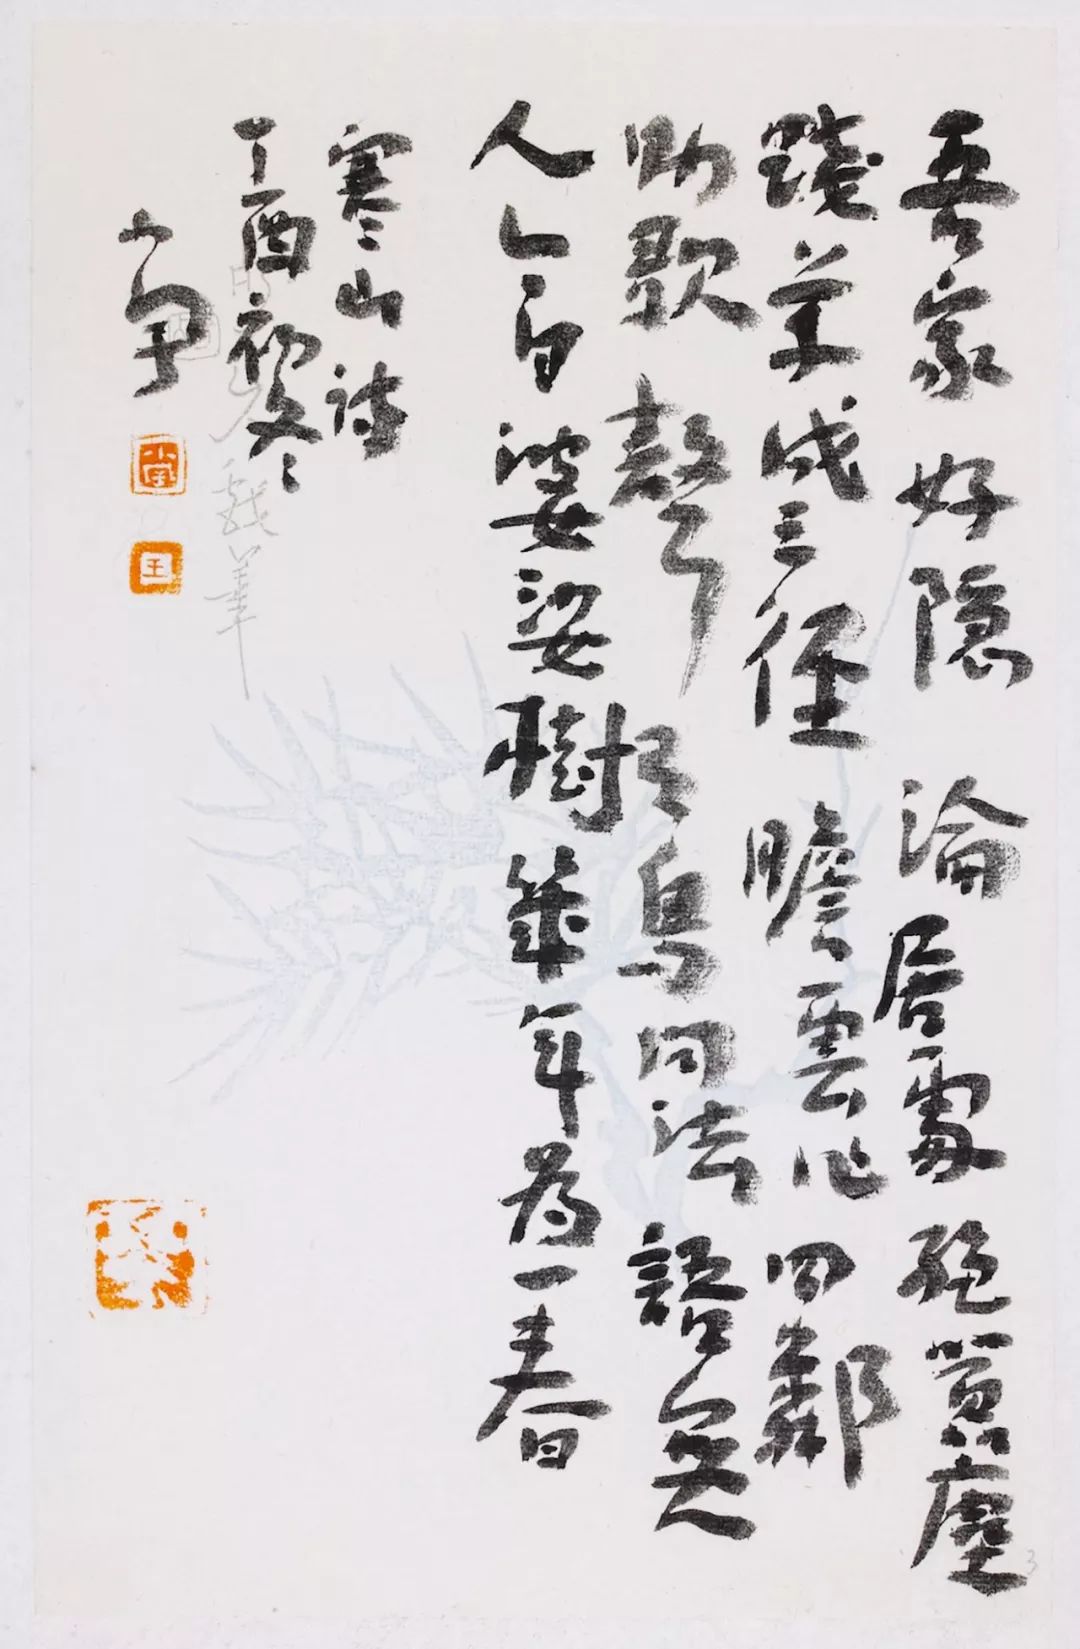 吾家好隱淪居處絕囂塵
踐草成三徑瞻雲作四鄰
助歌聲有鳥問法語無
人今日婆娑樹幾年為一春
寒山詩
丁酉初冬
王